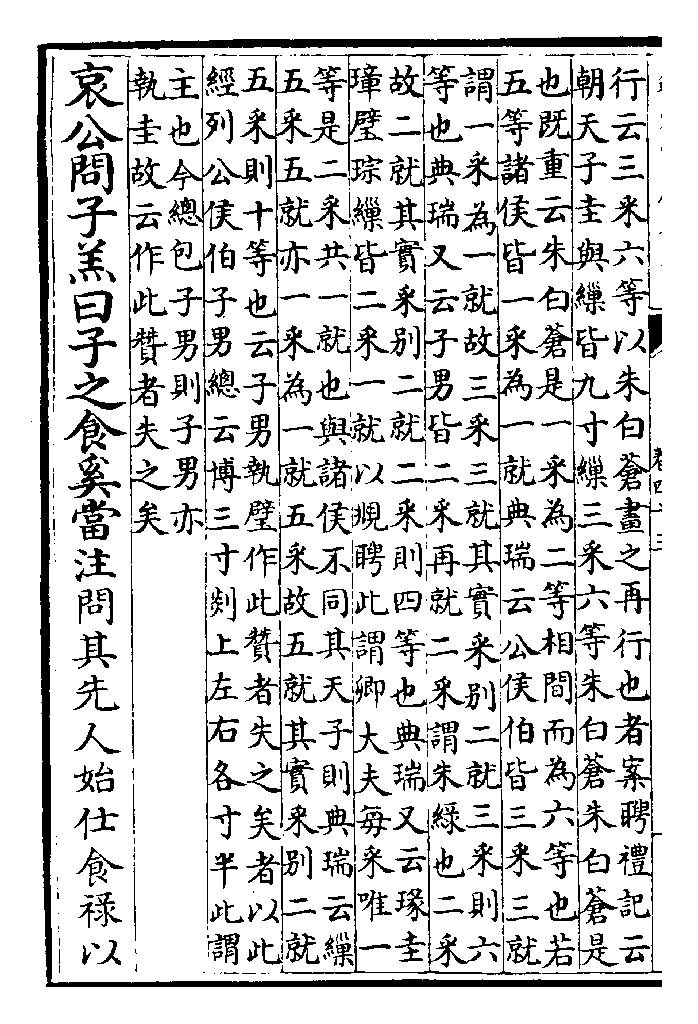 行云三采六等以朱白蒼畫之再行也者案聘禮記云
朝天子圭與繅皆九寸繅三采六等朱白蒼朱白蒼是
也既重云朱白蒼是一采為二等相間而為六等也若
五等諸侯皆一采為一就典瑞云公侯伯皆三采三就
謂一采為一就故三采三就其實采別二就三采則六
等也典瑞又云子男皆二采再就二采謂朱綠也二采
故二就其實采別二就二采則四等也典瑞又云瑑圭
璋璧琮繅皆二采一就以覜聘此謂卿大夫每采唯一
等是二采共一就也與諸侯不同其天子則典瑞云繅
五采五就亦一采為一就五采故五就其實采別二就
五采則十等也云子男執璧作此贊者失之矣者以此
經列公侯伯子男總云博三寸剡上左右各寸半此謂
主也今總包子男則子男亦
執圭故云作此贊者失之矣
哀公問子羔曰子之食奚當注問其先人始仕食祿以